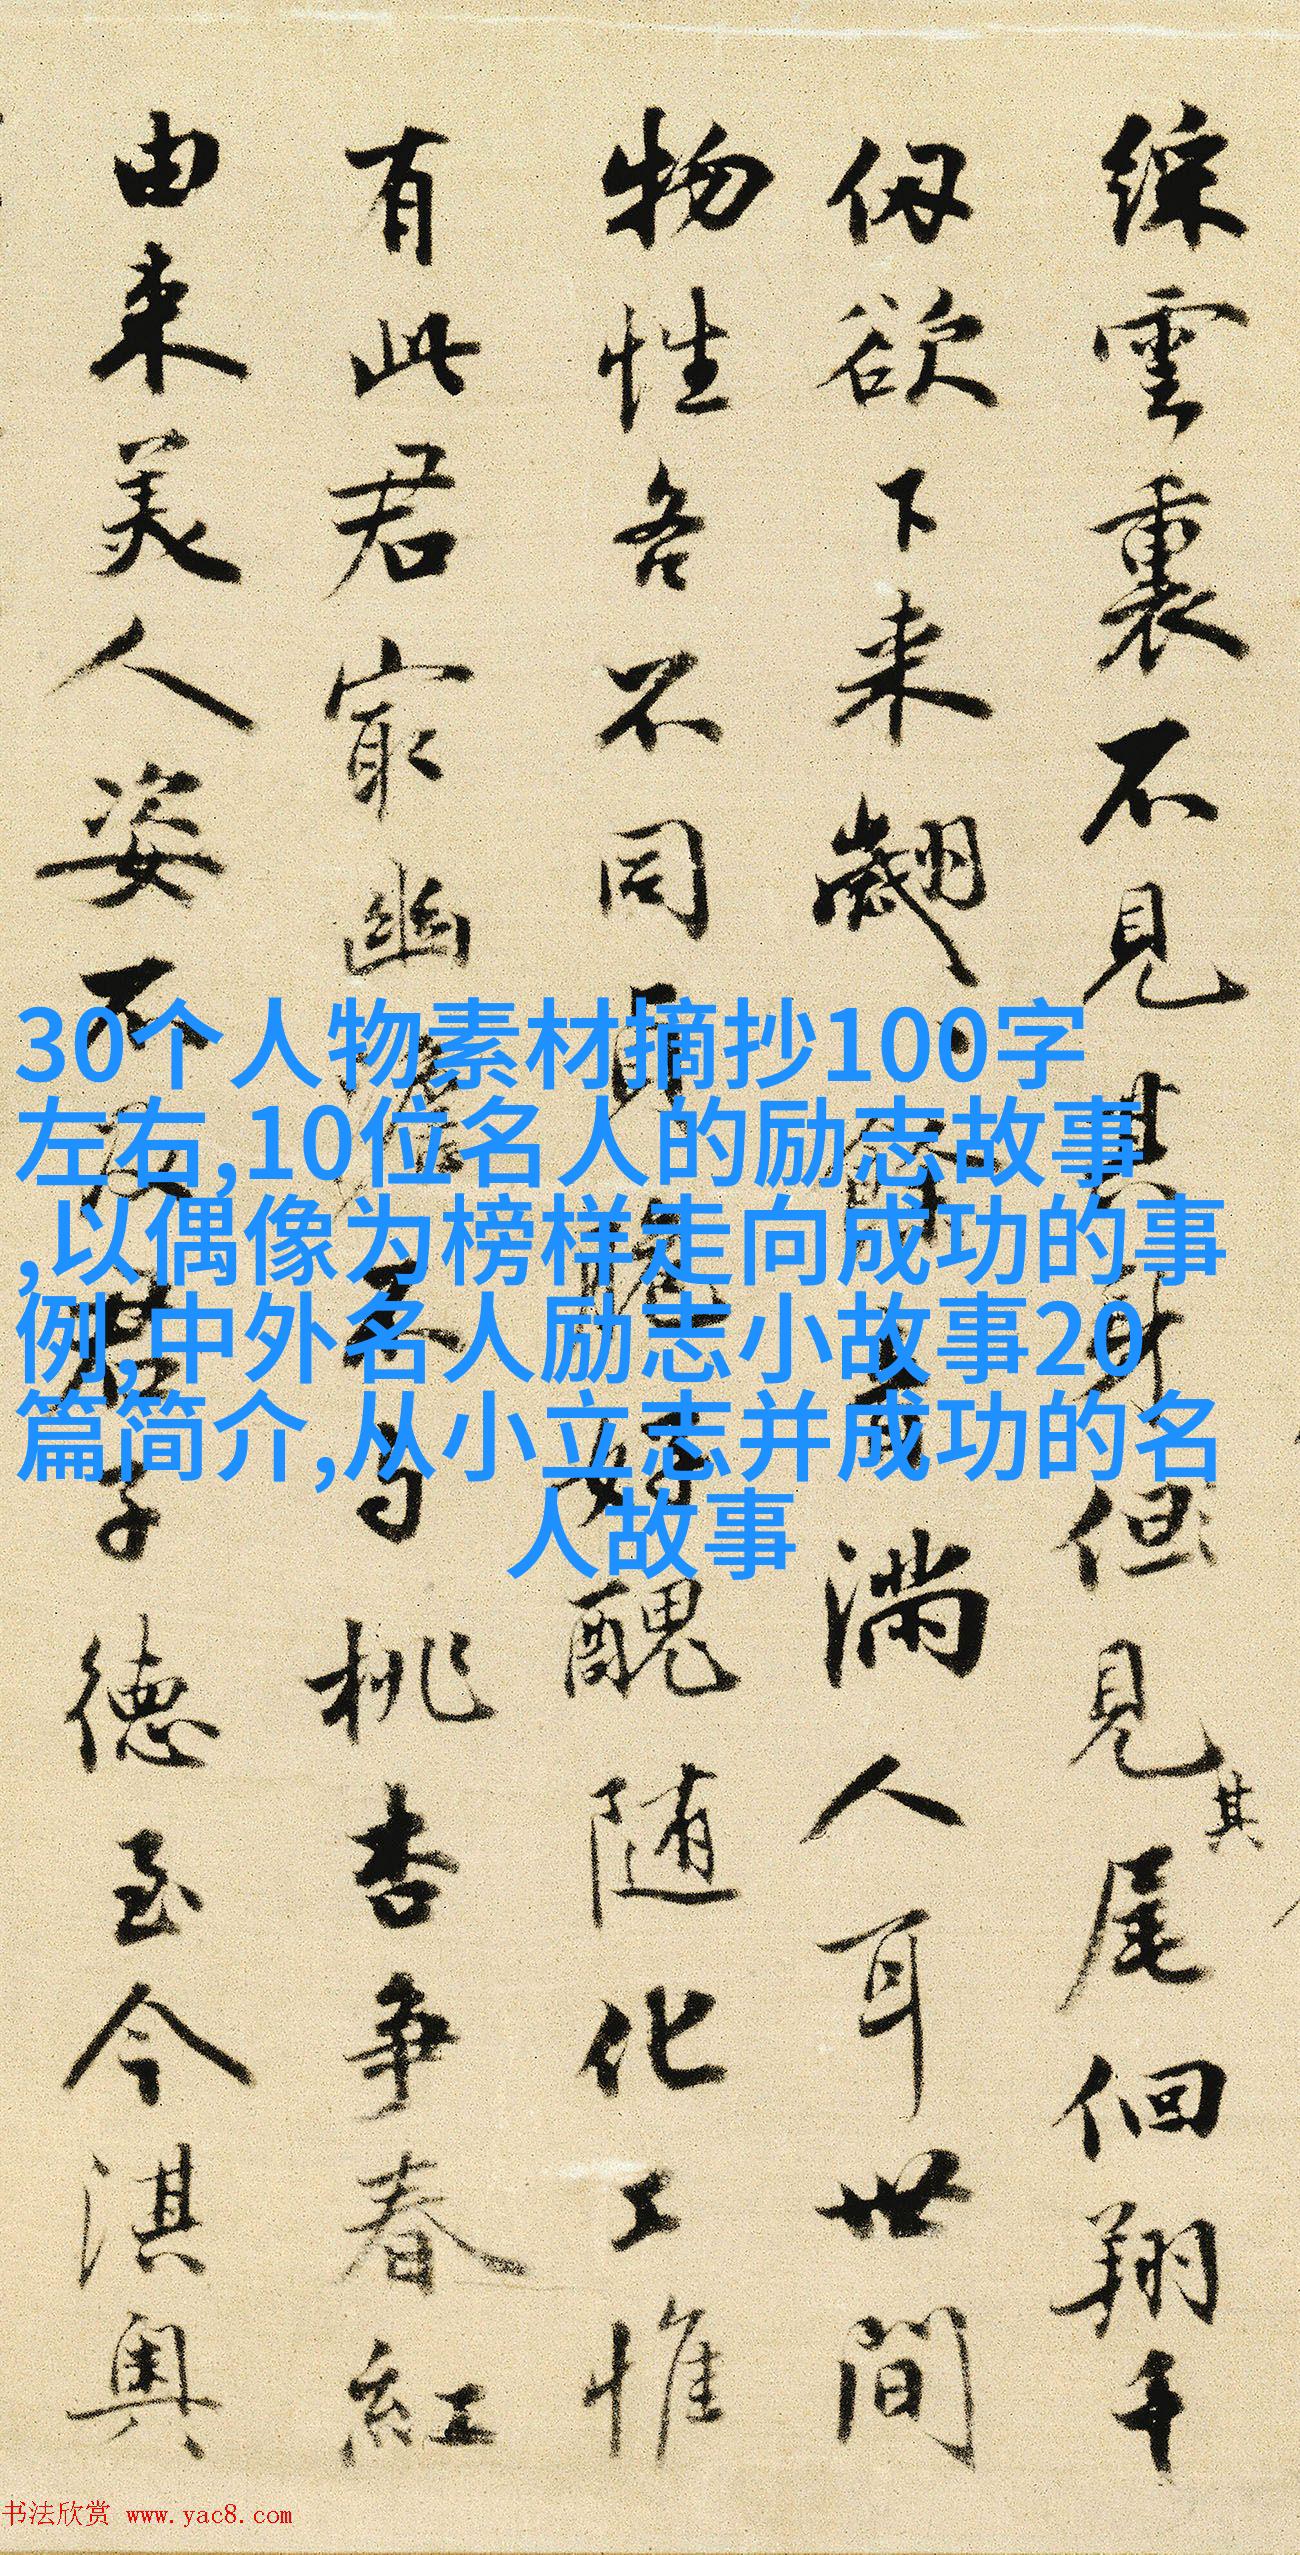 綵雲裏不見其身但見其尾徊翔千
仞欲下来翽、餘音滿人耳世間
物性各不同妍醜随化工惟
有此君寂幽澹不与桃杏争春紅
由来美人姿不及君子德至今淇奥
30个人物素材摘抄100字
左右,10位名人的励志故事
,以偶像为榜样走向成功的事
例,中外名人励志小故事20
篇简介,从小立志并成功的名
人故事
书法欣赏 www.yac8.com